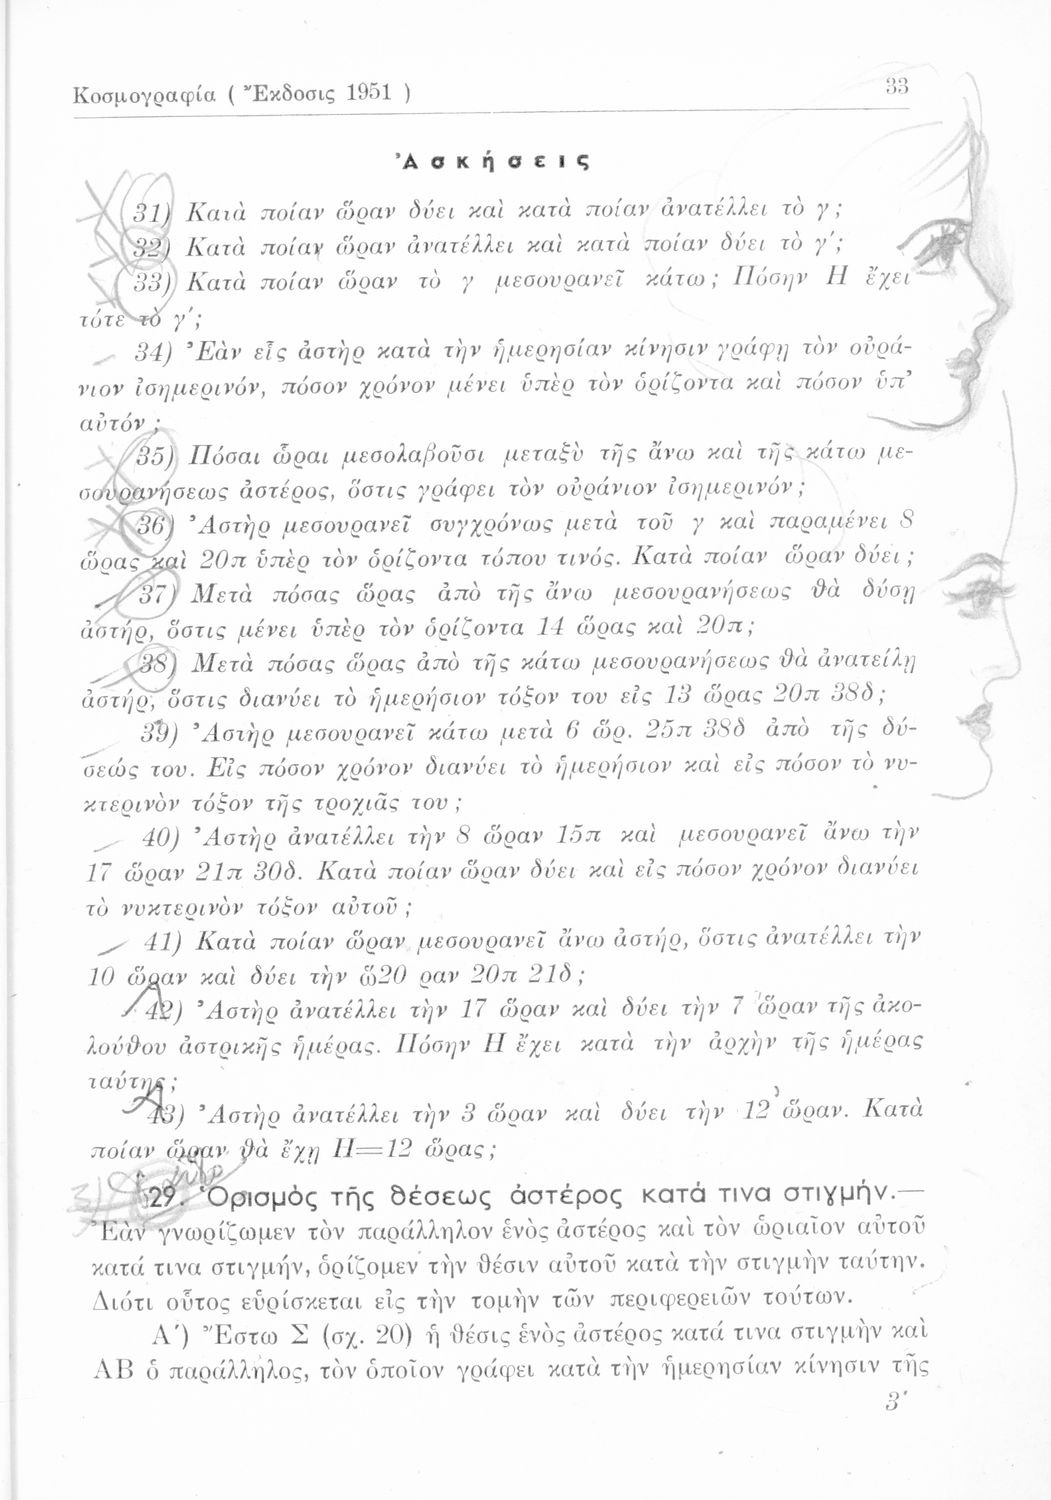 Κοσμογραφία ( Ἔκδοσις 1951 ) 33
Ἀσκήσεις
31) Κατὰ ποίαν ὥραν δύει καὶ κατὰ ποίαν ἀνατέλλει τὸ γ;
32) Κατὰ ποίαν ὥραν ἀνατέλλει καὶ κατὰ ποίαν δύει τὸ γ′;
33) Κατὰ ποίαν ὥραν τὸ γ μεσουρανεῖ κάτω; Πόσην Η ἔχει
τότε τὸ γ′;
34) Ἐὰν εἷς ἀστὴρ κατὰ τὴν ἡμερησίαν κίνησιν γράφῃ τὸν οὐρά-
νιον ἰσημερινόν, πόσον χρόνον μένει ὑπὲρ τὸν ὁρίζοντα καὶ πόσον ὑπ’
αὐτόν;
35) Πόσαι ὧραι μεσολαβοῦσι μεταξὺ τῆς ἄνω καὶ τῆς κάτω με-
σουρανήσεως ἀστέρος, ὅστις γράφει τὸν οὐράνιον ἰσημερινόν;
36) Ἀστὴρ μεσουρανεῖ συγχρόνως μετὰ τοῦ γ καὶ παραμένει 8
ὥρας καὶ 20π ὑπὲρ τὸν ὁρίζοντα τόπου τινός. Κατὰ ποίαν ὥραν δύει;
37) Μετὰ πόσας ὥρας ἀπὸ τῆς ἄνω μεσουρανήσεως θὰ δύσῃ
ἀστήρ, ὅστις μένει ὑπὲρ τὸν ὁρίζοντα 14 ὥρας καὶ 20π;
38) Μετὰ πόσας ὥρας ἀπὸ τῆς κάτω μεσουρανήσεως θὰ ἀνατείλῃ
ἀστήρ, ὅστις διανύει τὸ ἡμερήσιον τόξον του εἰς 13 ὥρας 20π 38δ;
39) Ἀστὴρ μεσουρανεῖ κάτω μετὰ 6 ὥρ. 25π 38δ ἀπὸ τῆς δύ-
σεώς του. Εἰς πόσον χρόνον διανύει τὸ ἡμερήσιον καὶ εἰς πόσον τὸ νυ-
κτερινὸν τόξον τῆς τροχιᾶς του;
40) Ἀστὴρ ἀνατέλλει τὴν 8 ὥραν 15π καὶ μεσουρανεῖ ἄνω τὴν
17 ὥραν 21π 30δ. Κατὰ ποίαν ὥραν δύει καὶ εἰς πόσον χρόνον διανύει
τὸ νυκτερινὸν τόξον αὐτοῦ;
41) Κατὰ ποίαν ὥραν μεσουρανεῖ ἄνω ἀστήρ, ὅστις ἀνατέλλει τὴν
10 ὥραν καὶ δύει τὴν ὥ20 ραν 20π 21δ;
42) Ἀστὴρ ἀνατέλλει τὴν 17 ὥραν καὶ δύει τὴν 7 ὥραν τῆς ἀκο-
λούθου ἀστρικῆς ἡμέρας. Πόσην Η ἔχει κατὰ τὴν ἀρχὴν τῆς ἡμέρας
ταύτης;
43) Ἀστὴρ ἀνατέλλει τὴν 3 ὥραν καὶ δύει τὴν 12 ὥραν. Κατὰ
ποίαν ὥραν θὰ ἔχῃ Η=12 ὥρας;
29. Ὁρισμὸς τῆς θέσεως ἀστέρος κατά τινα στιγμήν.—
Ἐὰν γνωρίζωμεν τὸν παράλληλον ἑνὸς ἀστέρος καὶ τὸν ὡριαῖον αὐτοῦ
κατά τινα στιγμήν, ὁρίζομεν τὴν θέσιν αὐτοῦ κατὰ τὴν στιγμὴν ταύτην.
Διότι οὗτος εὑρίσκεται εἰς τὴν τομὴν τῶν περιφερειῶν τούτων.
Α′) Ἔστω Σ (σχ. 20) ἡ θέσις ἑνὸς ἀστέρος κατά τινα στιγμὴν καὶ
ΑΒ ὁ παράλληλος, τὸν ὁποῖον γράφει κατὰ τὴν ἡμερησίαν κίνησιν τῆς
3′